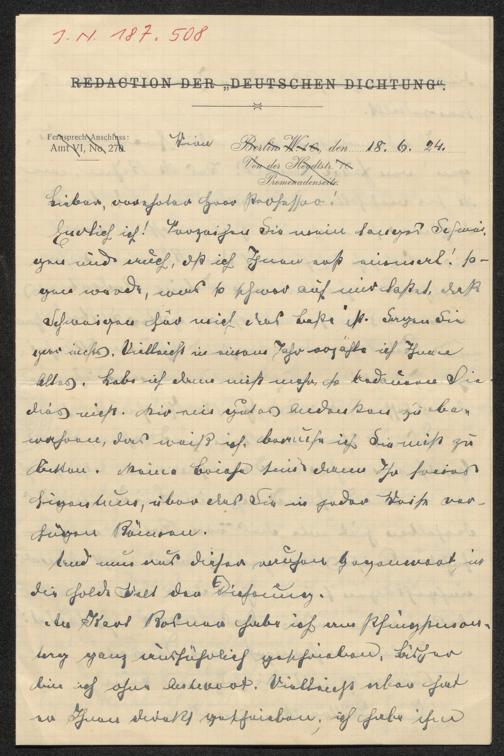 J. N. 187.508
REDACTION DER „DEUTSCHEN DICHTUNG“.
Fernsprech-Anschluss:
Amt VI, No. 270.
Wien Berlin W. 10, den 18. 6. 24.
Von der Heydtstr.
Promenadenseite.
Lieber, verehrter Herr Professor.
Endlich ich! Verzeihen Sie mein langes Schwei-
gen und auch, dß ich Ihnen erst einmal!
gen werde, was so schwer auf mir lastet, daß
Schweigen für mich das beste ist. Sagen Sie
gar nichts. Vielleicht in einem Jahr erzähle ich Ihnen
Alles. Lebe ich dann nicht mehr, so bedauern Sie
dies nicht. Mir ein gutes Andenken zu be-
wahren, das weiß ich, brauche ich Sie nicht zu
bitten. Meine Briefe sind dann Ihr freies
Eigentum, über das Sie in jeder Weise ver-
fügen können.
Und nun aus dieser rauhen Gegenwart in
die holde Welt der Dichtung.
An Karl Rosner habe ich am Pfingstsonn-
tag ganz ausführlich geschrieben, bisher
bin ich ohne Antwort. Vielleicht aber hat
er Ihnen direkt geschrieben; ich habe ihm